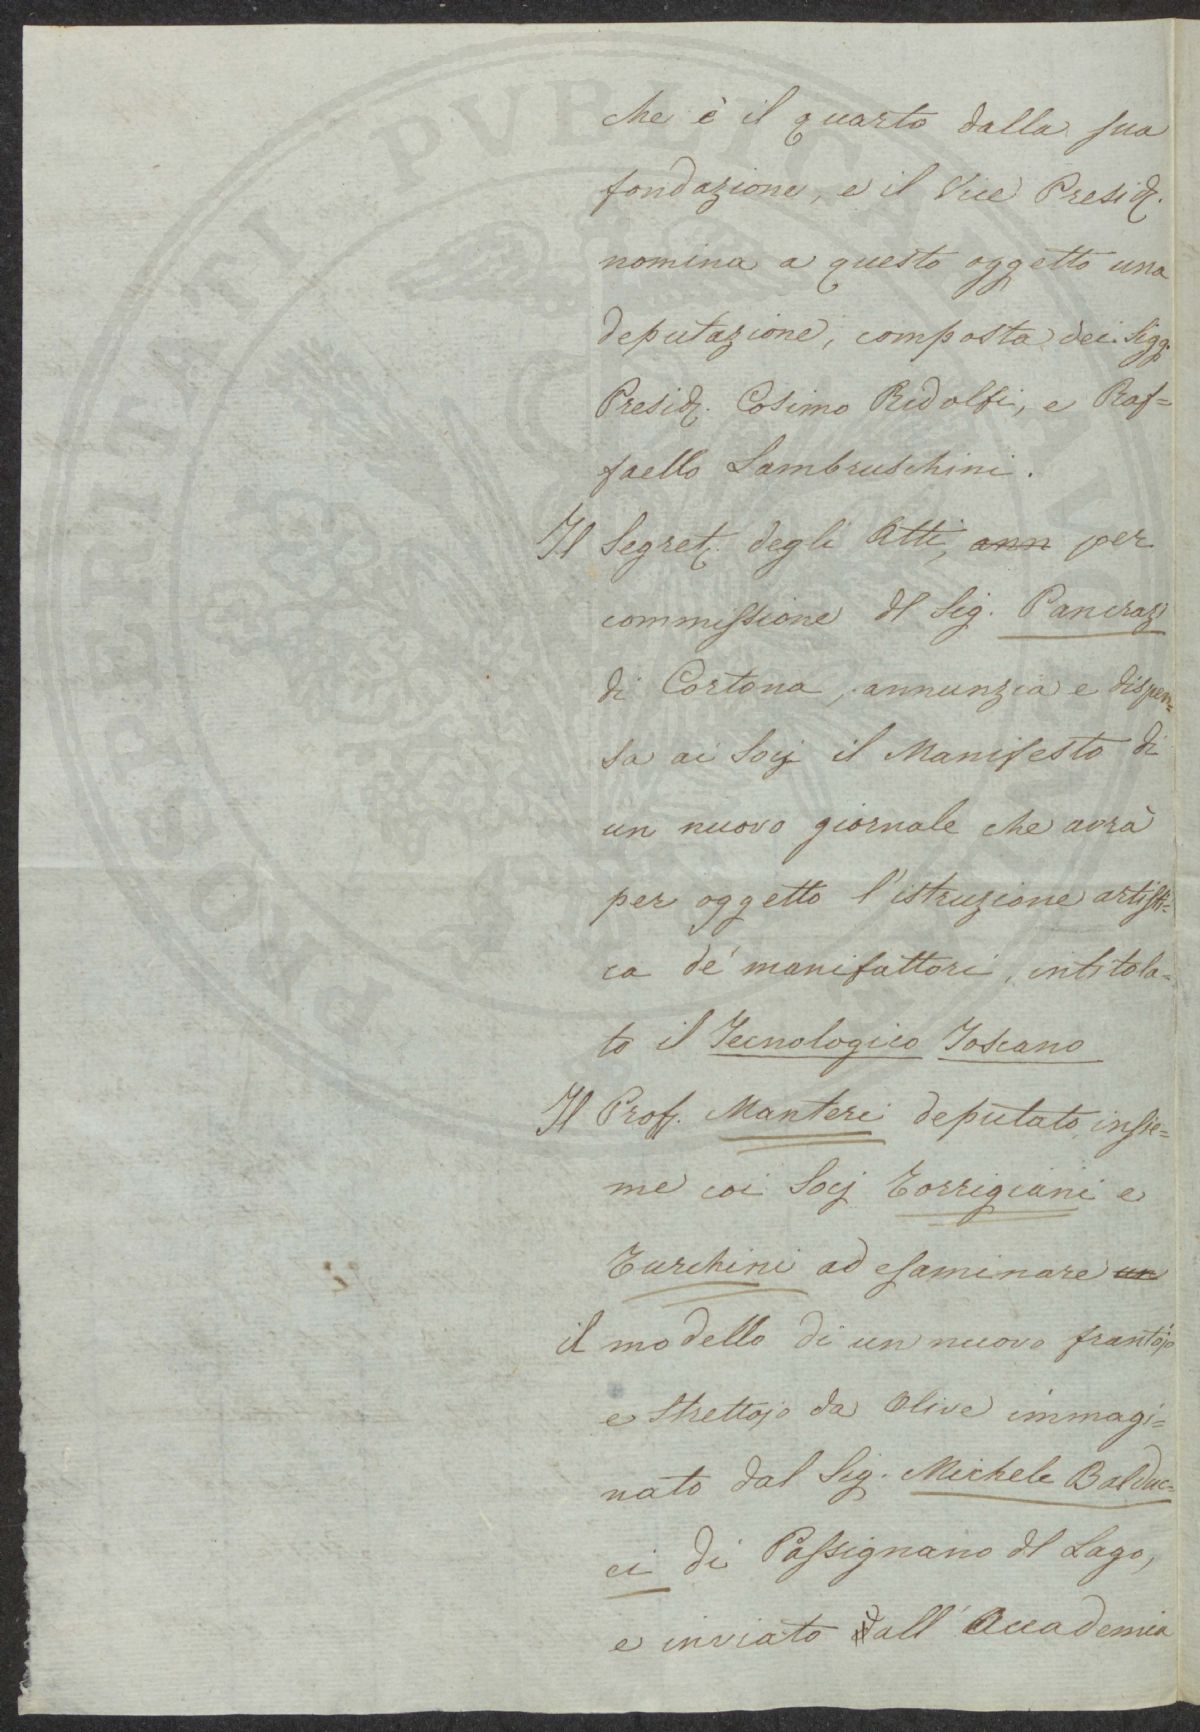 che è il quarto dalla sua
fondazione, e il Vice Presid.
nomina a questo oggetto una
deputazione, composta dei Sigg.
Presid. Cosimo Ridolfi, e Raf=
faello Lambruschini.
Il Segret. degli Atti, ann per
commissione del Sig. Pancrazi
di Cortona, annunzia e dispen=
sa ai Socj il Manifesto di
un nuovo giornale che avrà
per oggetto l'istruzione artisti=
ca de' manifattori, intitola=
to il Tecnologico Toscano
Il Prof. Manteri deputato insie=
me coi Socj Torrigiani e
Turchini ad esaminare un
il modello di un nuovo frantojo
e strettojo da Olive immagi=
nato dal Sig. Michele Balduc=
ci di Passignano del Lago,
e inviato all' Accademia
PERILITATI PVBLICAE